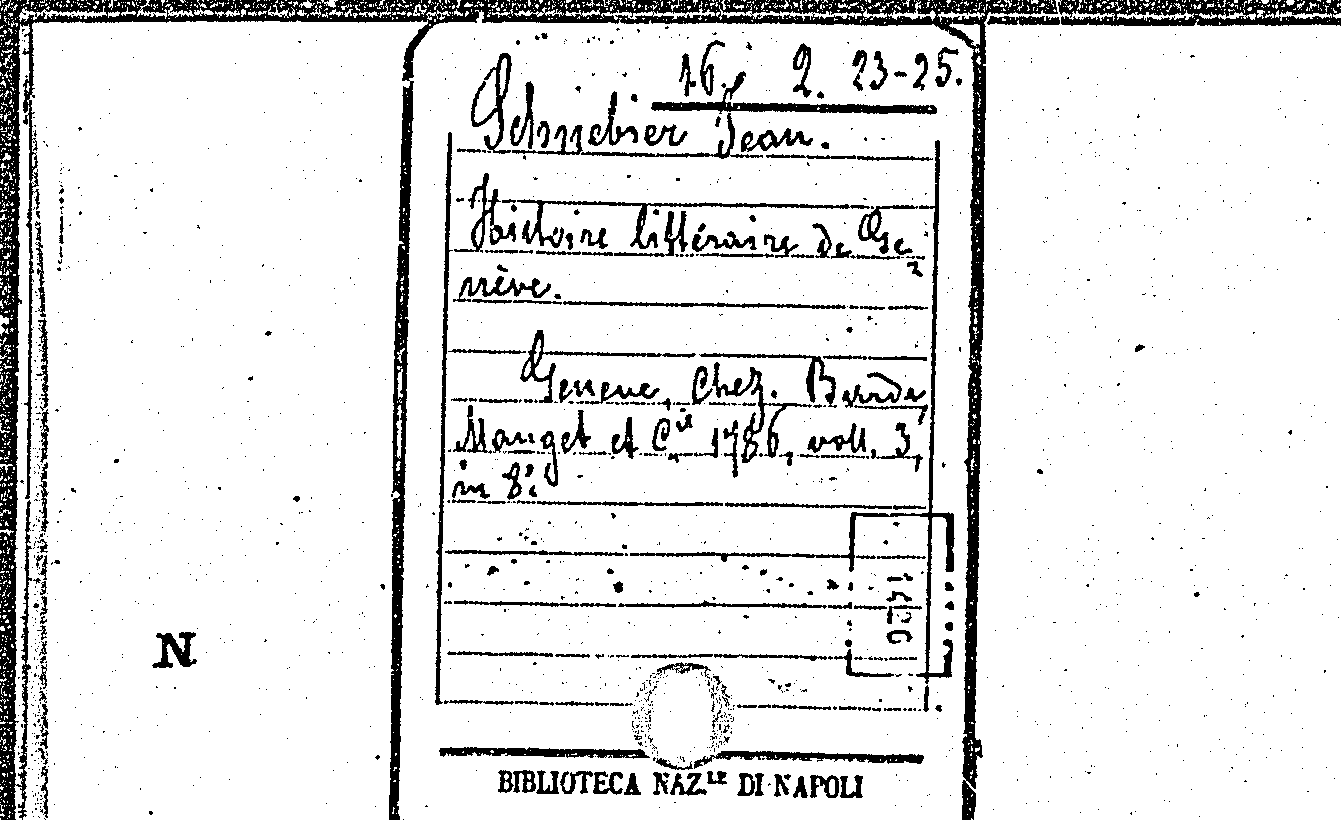 16. 2. 23-25.
Schnebier Jean.
Histoire littéraire de Ge-
nève.
Geneve, Chez. Barde,
Manget et C.ie 1786, voll. 3,
in 8.°
1426
N
BIBLIOTECA NAZ.LE DI NAPOLI